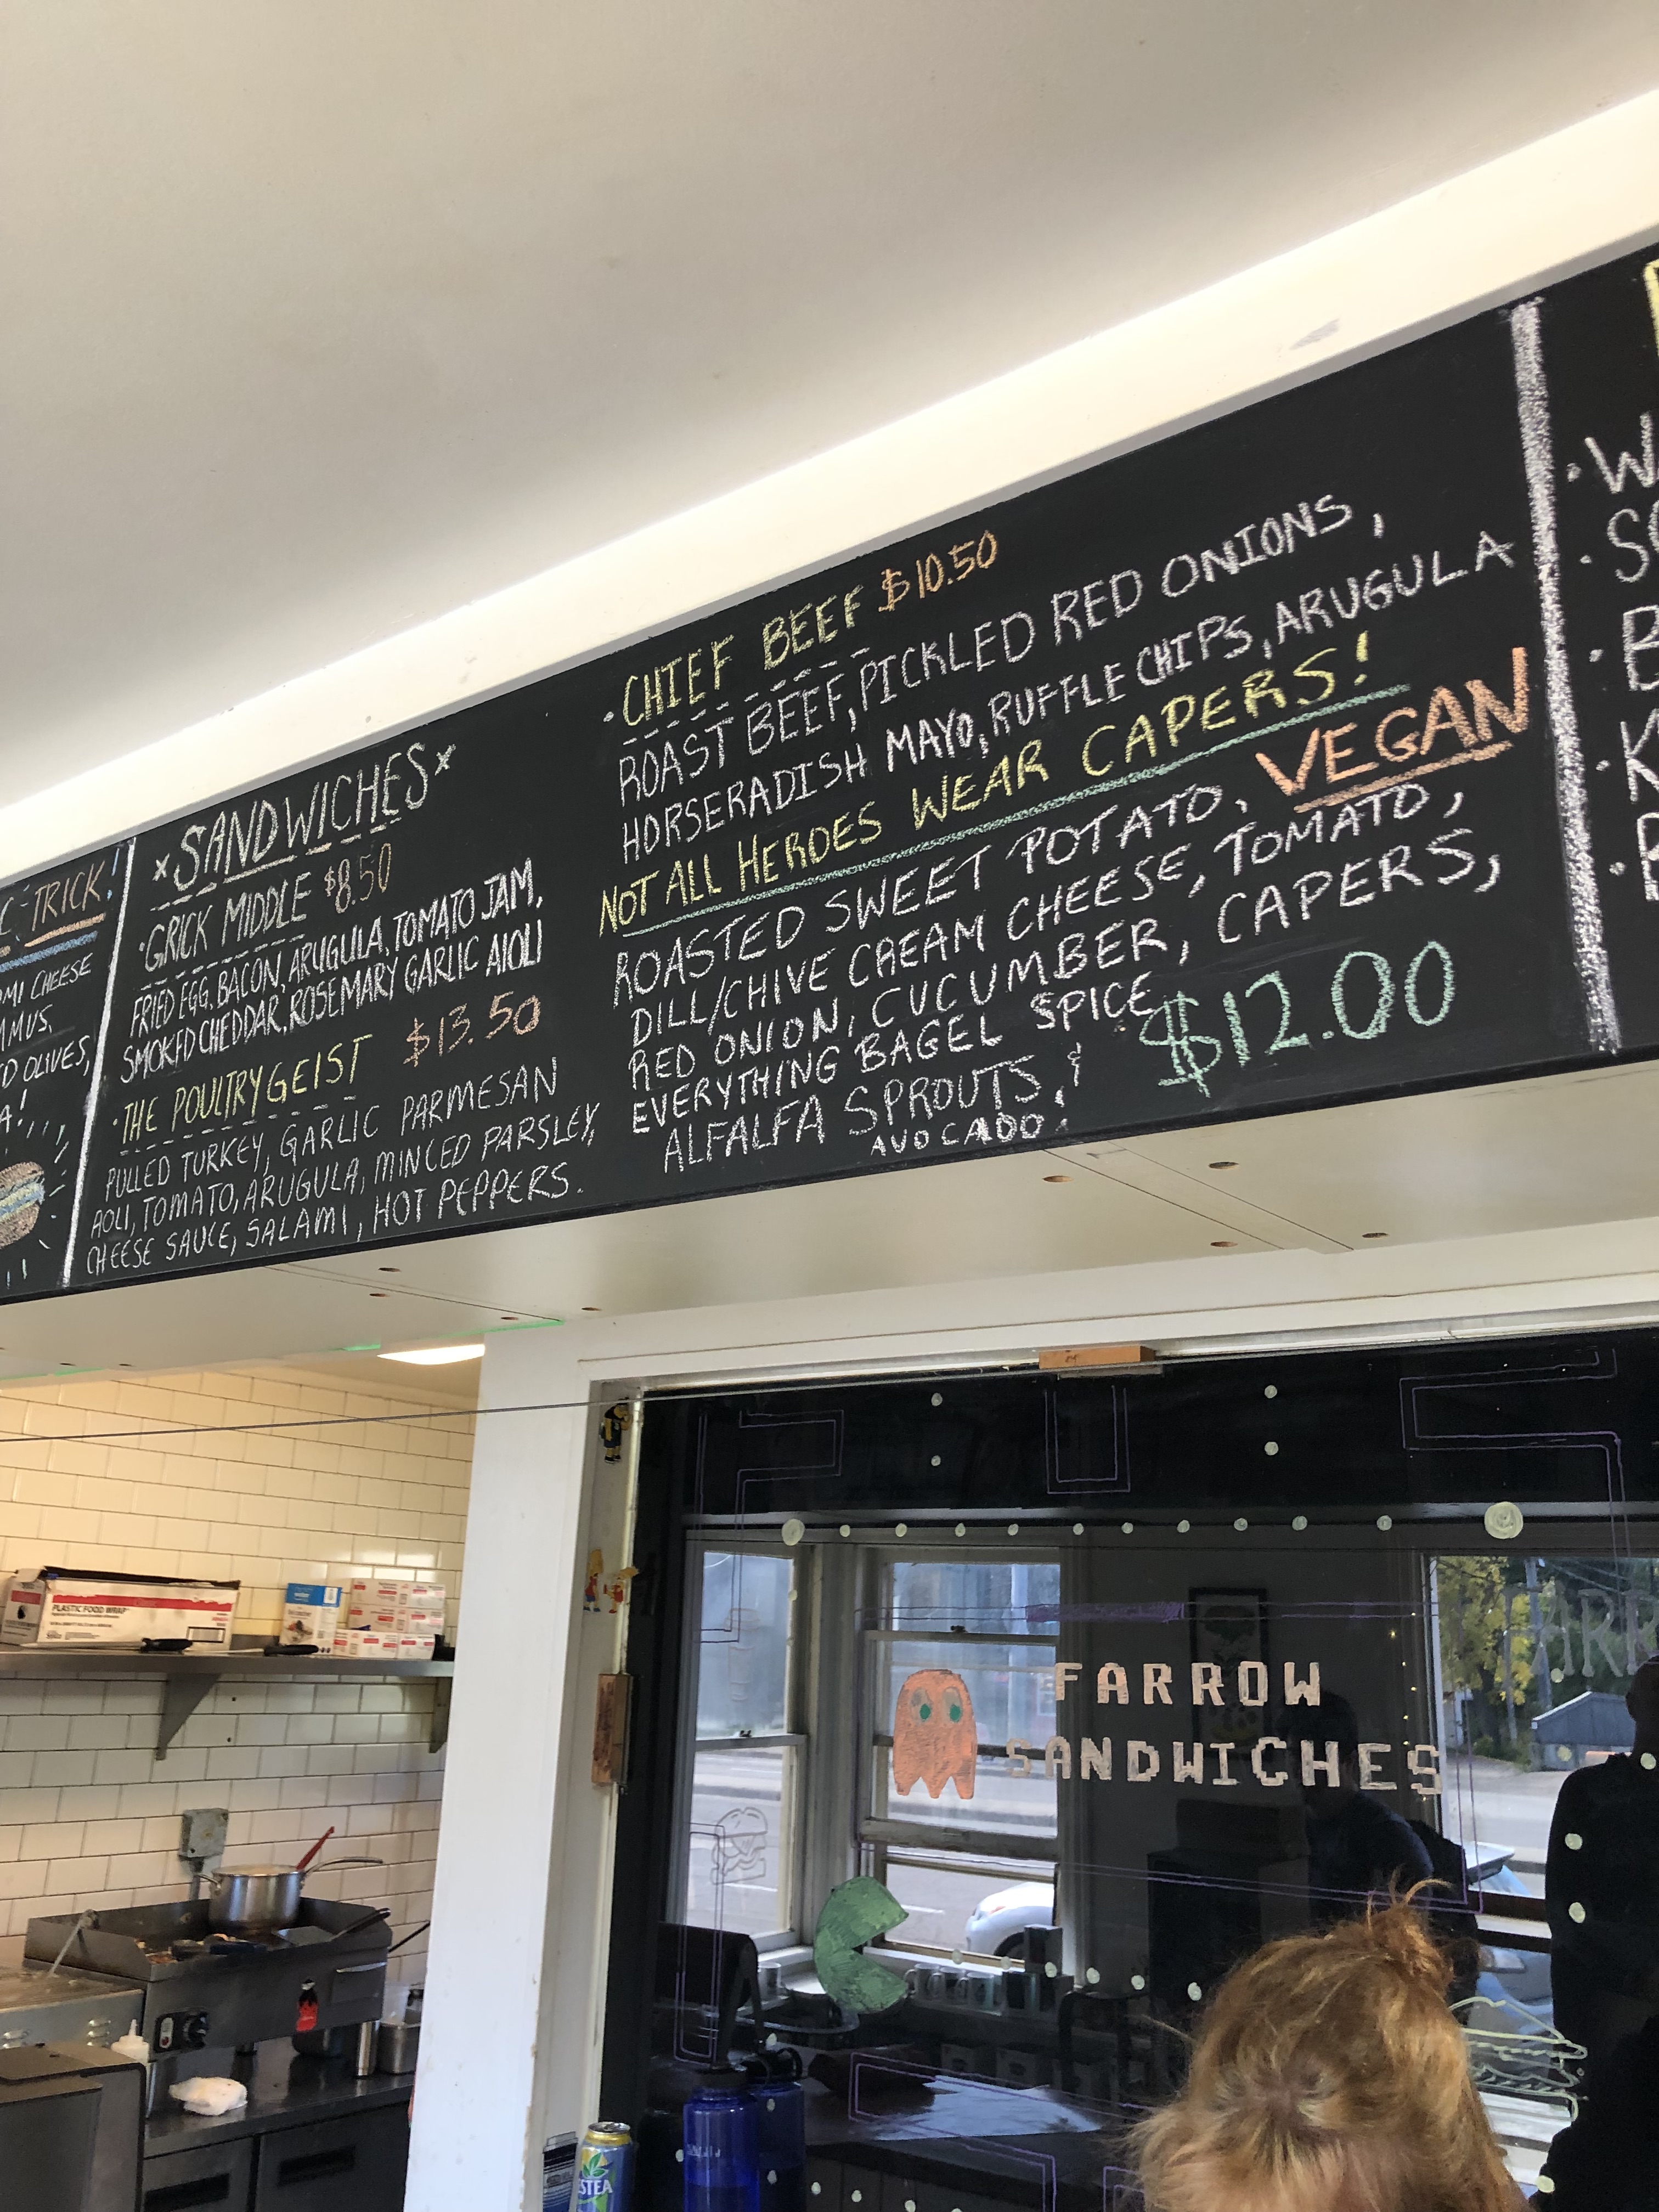 TRICK!
CHEESE
OLIVES,
A!
x SANDWICHES x
· GRICK MIDDLE $8.50
FRIED EGG, BACON, ARUGULA, TOMATO JAM,
SMOKED CHEDDAR, ROSEMARY GARLIC AIOLI
· THE POULTRYGEIST $13.50
PULLED TURKEY, GARLIC PARMESAN
AOLI, TOMATO, ARUGULA, MINCED PARSLEY,
CHEESE SAUCE, SALAMI, HOT PEPPERS.
· CHIEF BEEF $10.50
ROAST BEEF, PICKLED RED ONIONS,
HORSERADISH MAYO, RUFFLE CHIPS, ARUGULA
NOT ALL HEROES WEAR CAPERS!
VEGAN
ROASTED SWEET POTATO,
DILL/CHIVE CREAM CHEESE, TOMATO,
RED ONION, CUCUMBER, CAPERS,
EVERYTHING BAGEL SPICE
ALFALFA SPROUTS, &
AVOCADO.
$12.00
PLASTIC FOOD WRAP
FARROW
SANDWICHES